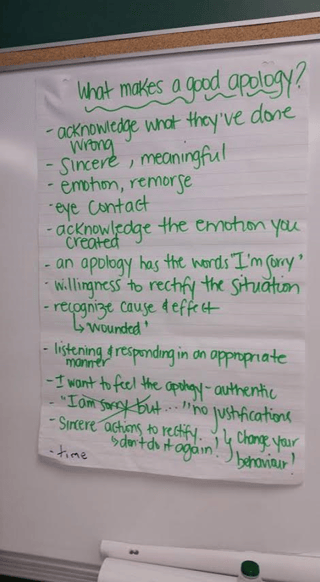 What makes a good apology?
- acknowledge what they've done
wrong
- Sincere, meaningful
- emotion, remorse
- eye contact
- acknowledge the emotion you
created
- an apology has the words "I'm sorry"
- willingness to rectify the situation
- recognize cause & effect
↳ "wounded"
- listening & responding in an appropriate
manner
- I want to feel the apology - authentic
- "I am sorry but..." no justifications
- Sincere actions to rectify. ↳ Change your
↳ don't do it again! behaviour!
- time